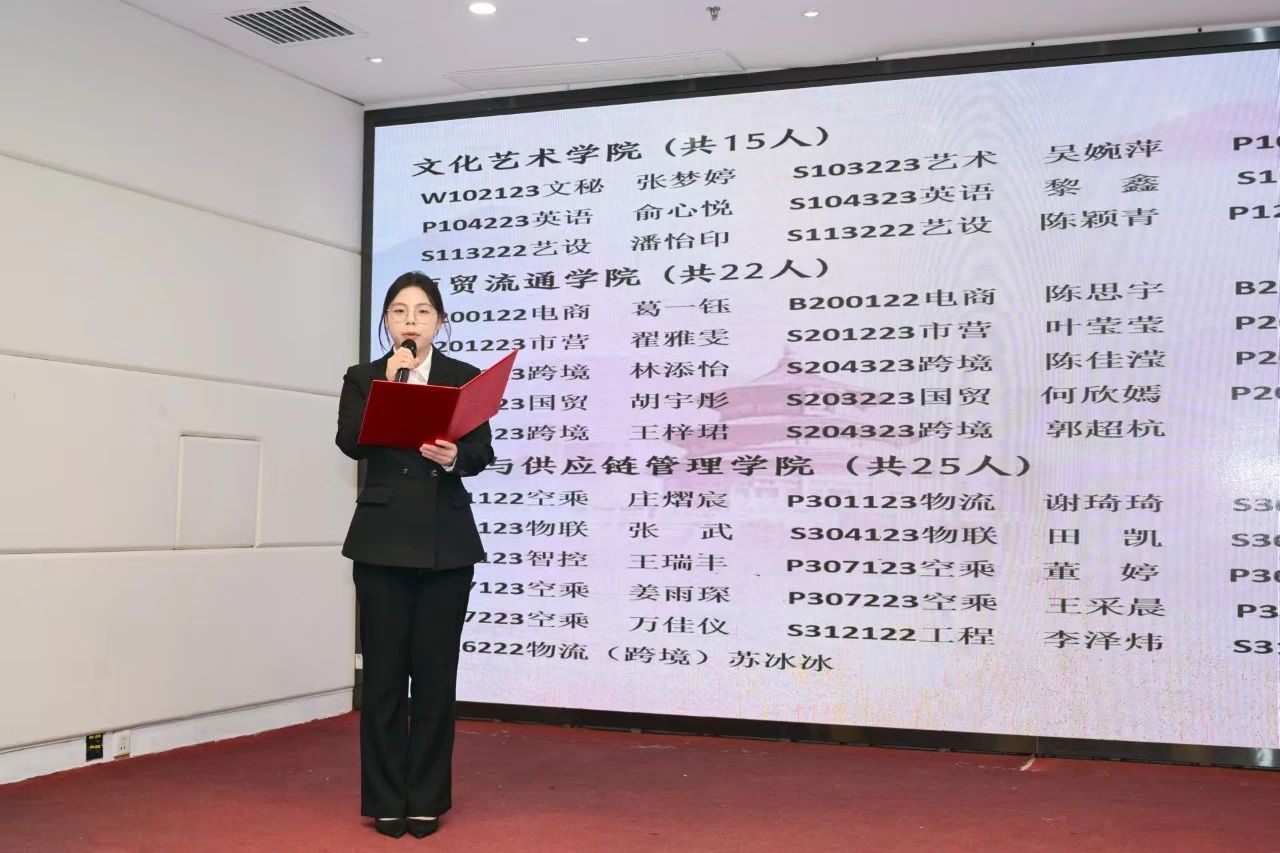 文化艺术学院（共15人）
W102123文秘 张梦婷 S103223艺术 吴婉萍 P10
P104223英语 俞心悦 S104323英语 黎 鑫 S1
S113222艺设 潘怡印 S113222艺设 陈颖青 P12
贸流通学院（共22人）
200122电商 葛一钰 B200122电商 陈思宇 B2
201223市营 翟雅雯 S201223市营 叶莹莹 P2
23跨境 林添怡 S204323跨境 陈佳滢 P2
23国贸 胡宇彤 S203223国贸 何欣嫣 P20
23跨境 王梓珺 S204323跨境 郭超杭
与供应链管理学院（共25人）
1122空乘 庄熠宸 P301123物流 谢琦琦 S30
123物联 张 武 S304123物联 田 凯 S30
123智控 王瑞丰 P307123空乘 董 婷 P30
7123空乘 姜雨琛 P307223空乘 王采晨 P3
7223空乘 万佳仪 S312122工程 李泽炜 S31
6222物流（跨境）苏冰冰